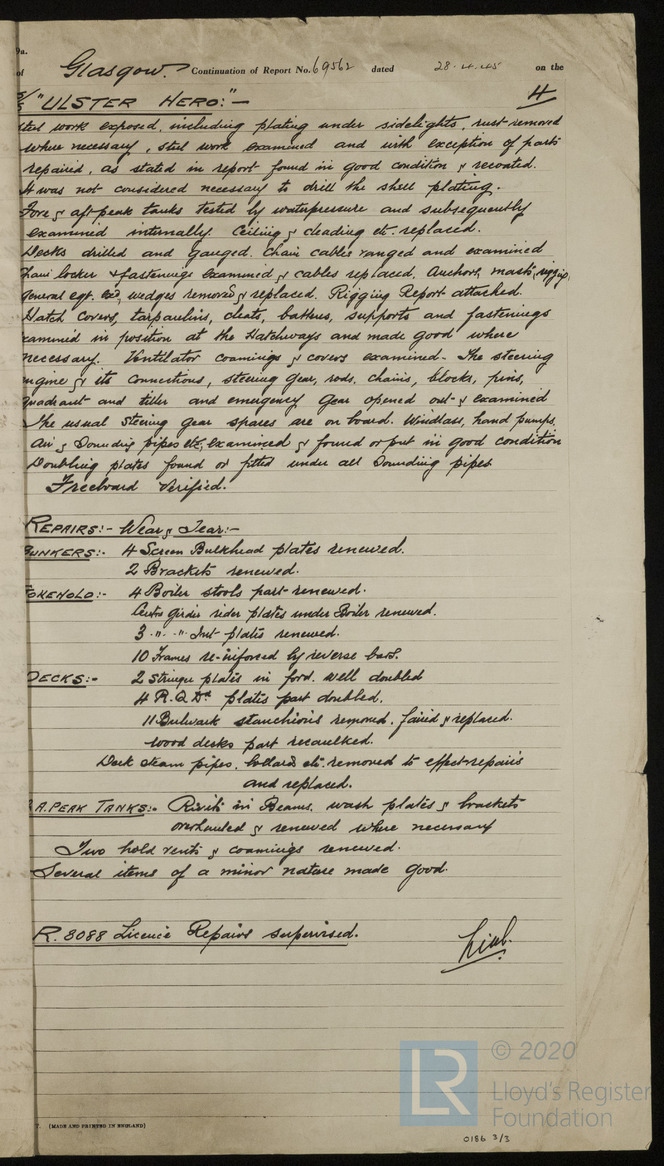 9a.
of Glasgow. Continuation of Report No. 69562 dated 28.4.45 on the
S/S "ULSTER HERO:"- 4
steel work exposed, including plating under sidelights, rust removed
where necessary, steel work examined and with exception of parts
repaired, as stated in report found in good condition & recoated.
It was not considered necessary to drill the shell plating.
Fore & aft peak tanks tested by waterpressure and subsequently
examined internally. Ceiling & cleading etc. replaced.
Decks drilled and gauged. Chain cables ranged and examined
Chain locker & fastenings examined & cables replaced. Anchors, masts, rigging,
General eqt. exd, wedges removed & replaced. Rigging Report attached.
Hatch covers, tarpaulins, cleats, battens, supports and fastenings
examined in position at the Hatchways and made good where
necessary. Ventilator coamings & covers examined - The steering
engine & its connections, steering gear, rods, chains, blocks, pins,
quadrant and tiller and emergency gear opened out & examined
The usual Steering gear spares are on board. Windlass, hand pumps,
Air & Sounding pipes etc, examined & found or put in good condition
Doubling plates found or fitted under all Sounding pipes
Freeboard Verified.
REPAIRS:- Wear & Tear:-
BUNKERS:- 4 Screen Bulkhead plates renewed.
2 Brackets renewed.
STOKEHOLD:- 4 Boiler stools part renewed.
Centre girder rider plates under Boiler renewed.
3 " " Int plates renewed.
10 Frames re-inforced by reverse bars.
DECKS:- 2 Stringer plates in ford. well doubled
4 R.Q Dk plates part doubled.
11 Bulwark stanchions removed, faired & replaced.
Wood decks part recaulked.
Deck steam pipes, bollards etc. removed to effect repairs
and replaced.
A. PEAK TANKS:- Rivets in Beams, wash plates & brackets
overhauled & renewed where necessary
Two hold vents & coamings renewed.
Several items of a minor nature made good.
R. 8088 Licence Repairs supervised.
7. (MADE AND PRINTED IN ENGLAND)
LR © 2020
Lloyd's Register
Foundation
0186 3/3